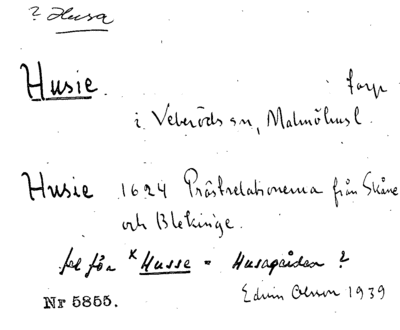 ? Husa
Husie. torp
i Veberöds sn, Malmöhusl.
Husie 1624 Prästrelationerna från Skåne
och Blekinge.
fel för × Husse = Husagården ?
Nr 5855. Edvin Olsson 1939